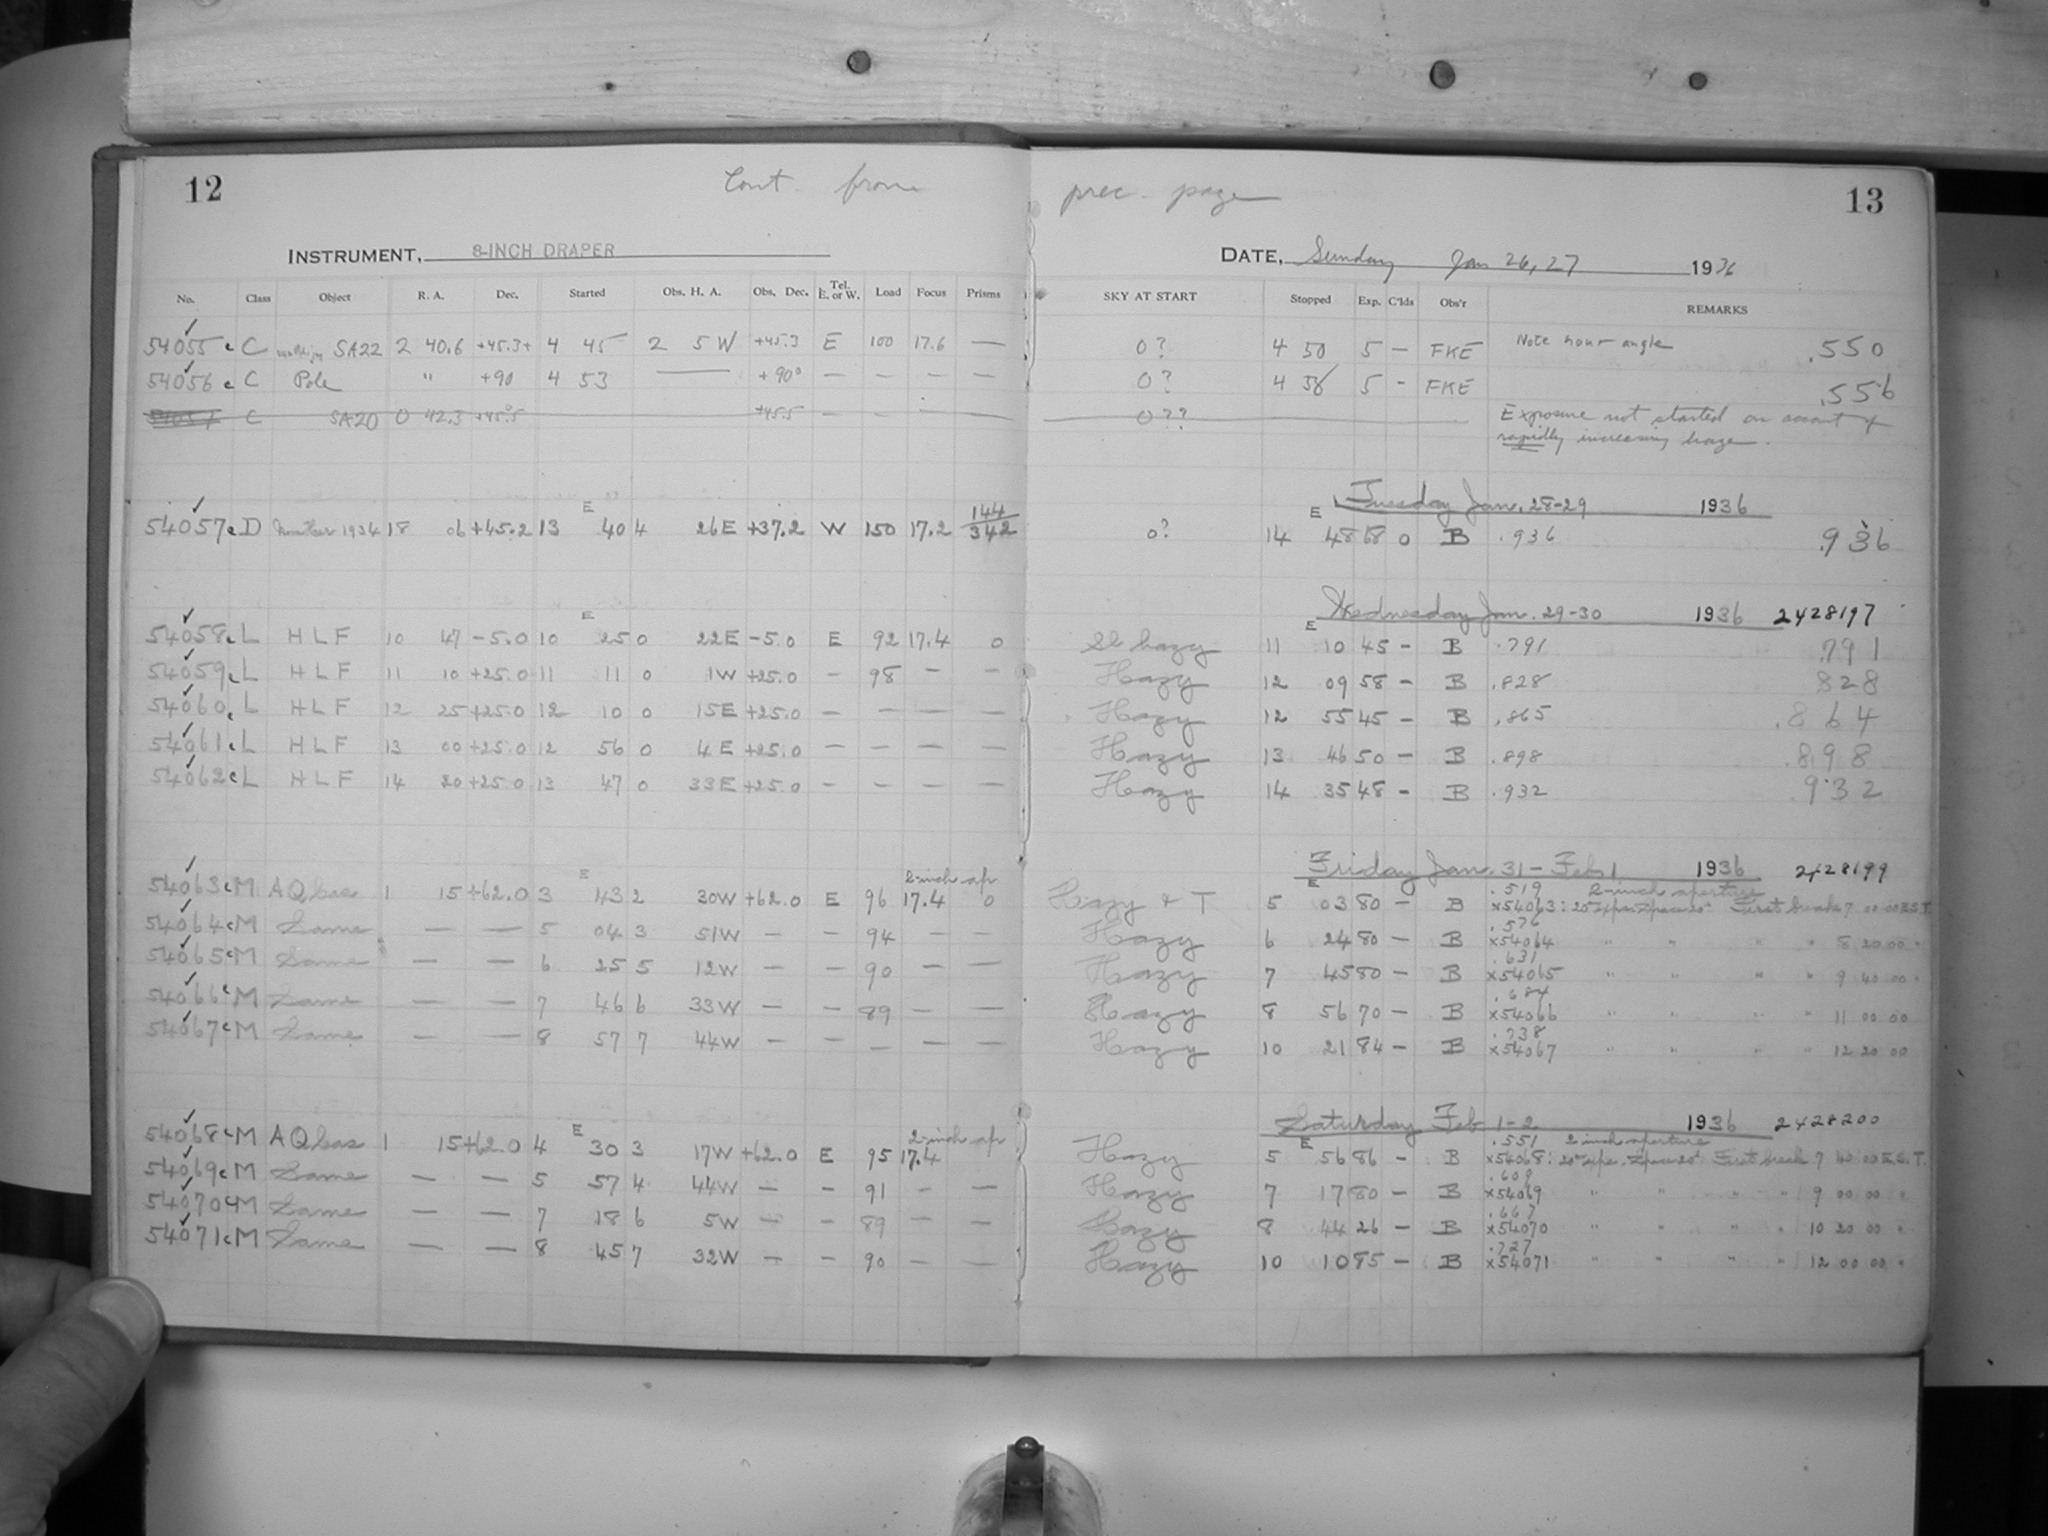 12 Cont. from prec. page 13
INSTRUMENT, 8-INCH DRAPER DATE, Sunday Jan 26, 27 1936
No. Class Object R. A. Dec. Started Obs. H. A. Obs. Dec. Tel. E. or W. Load Focus Prisms SKY AT START Stopped Exp. C'lds Obs'r REMARKS
54055 c C SA22 2 40.6 +45.3+ 4 45 2 5 W +45.3 E 100 17.6 — 0? 4 50 5 — FKE Note hour angle .550
54056 c C Pole " +90 4 53 — +90° — — — — 0? 4 58 5 - FKE .556
54057 C SA20 0 42.3 +45.5 +45.5 — — — — 0?? Exposure not started on account of
rapidly increasing haze.
Tuesday Jan. 28-29 1936
54057 c D 1934 18 06 +45.2 E 13 40 4 26E +37.2 W 150 17.2 144/342 0? E 14 48 68 0 B .936 .936
Wednesday Jan. 29-30 1936 2428197
54058 c L HLF 10 47 -5.0 E 10 25 0 22E -5.0 E 92 17.4 0 Sl hazy E 11 10 45 — B .791 .791
54059 c L HLF 11 10 +25.0 11 11 0 1W +25.0 — 98 — — Hazy 12 09 58 — B .828 828
54060 c L HLF 12 25 +25.0 12 10 0 15E +25.0 — — — — Hazy 12 55 45 — B .865 .864
54061 c L HLF 13 00 +25.0 12 56 0 4E +25.0 — — — — Hazy 13 46 50 — B .898 .898
54062 c L HLF 14 20 +25.0 13 47 0 33E +25.0 — — — — Hazy 14 35 48 — B .932 .932
Friday Jan. 31 - Feb 1 1936 2428199
2-inch ap .519 2-inch aperture
54063 c M AQ Cas 1 15 +62.0 E 3 43 2 30W +62.0 E 96 17.4 0 Hazy & T E 5 03 80 — B x54063: First break 7 00 00 E.S.T.
.576
54064 c M Same — — 5 04 3 51W — — 94 — — Hazy 6 24 80 — B x54064 " " " " 8 20 00 "
.631
54065 c M Same — — 6 25 5 12W — — 90 — — Hazy 7 45 80 — B x54065 " " " " 9 40 00 "
.684
54066 c M Same — — 7 46 6 33W — — 89 — — Hazy 8 56 70 — B x54066 " " " " 11 00 00
.738
54067 c M Same — — 8 57 7 44W — — — — — Hazy 10 21 84 — B x54067 " " " " 12 20 00
Saturday Feb 1-2 1936 2428200
2-inch ap .551 2 inch aperture
54068 c M AQ Cas 1 15 +62.0 E 4 30 3 17W +62.0 E 95 17.4 Hazy E 5 56 86 — B x54068: First break 7 40 00 E.S.T.
.609
54069 c M Same — — 5 57 4 44W — — 91 — — Hazy 7 17 80 — B x54069 " " " " 9 00 00 "
.667
54070 c M Same — — 7 18 6 5W — — 89 — — Hazy 8 44 26 — B x54070 " " " " 10 20 00 "
.727
54071 c M Same — — 8 45 7 32W — — 90 — — Hazy 10 10 85 — B x54071 " " " " 12 00 00 "